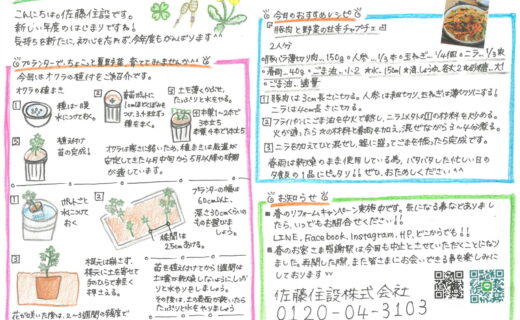 こんにちは。佐藤住設です。
新しい年度のはじまりですね!
気持ちを新たに、初心を忘れず、今年度もがんばります^^
プランターで、ちょこっと夏野菜、育ててみませんか^^
今回はオクラの植付をご紹介です。
オクラの種まき
種は一晩
水につけておく。
土を薄くかぶせ、
たっぷりと水をやる。
本葉1~2本で
3本立ち
本葉4本で1本立ち
植え付け
苗の完成!
オクラは寒さに弱いため、種まきは気温が
安定してきた4月中旬から5月以降の時期
が適しています。
ポットごと
水につけて
おく
プランターの幅は
60cm以上、
深さ30cmくらい
のものを選びま
しょう。
株間は
25cmあける。
根元は崩さず、
根元に土を寄せて
手のひらで軽く
押さえる。
苗を植え付けてから1週間は
土壌が乾燥しないようにしっか
りと水やりをしましょう。
その後は、土の表面が乾いたら
たっぷりと水をやりましょう
花が咲いた後は、2~3週間の頻度で
今日のおすすめレシピ
豚肉と野菜の甘辛チャプチェ
2人分
豚肉(薄切り肉)…150g・人参…1/3本・玉ねぎ…1/4個・ニラ…1/3束
春雨…40g・ごま油…小2
・ごま油…適量
① 豚肉は3cm長さに切る。人参は千切り、玉ねぎは薄切りにする!
ニラは4cm長さに切る。
② フライパンにごま油を中火で熱し、ニラ以外の①の材料を炒める。
火が通たら次の材料と春雨を加え、混ぜながら3~4分煮る。
③ ニラを加えてひと混ぜし、器に盛ってごまを振ったら完成です。
春雨は乾燥のまま使用している為、バタバタした忙しい日の
夕食の1品にピッタリ!!ぜひ、おためしください^^
お知らせ
■春のリフォームキャンペーン実施中です。気になる事などありまし
たら、いつでもお問合せください!!
LINE、Facebook、Instagram、HP、どこからでも!!
■春のお客さま感謝祭は今回も中止とさせていただくことになり
ました。再開した際、また皆さまにお会いできる事を楽しみに
しております^^
佐藤住設株式会社
0120-04-3103